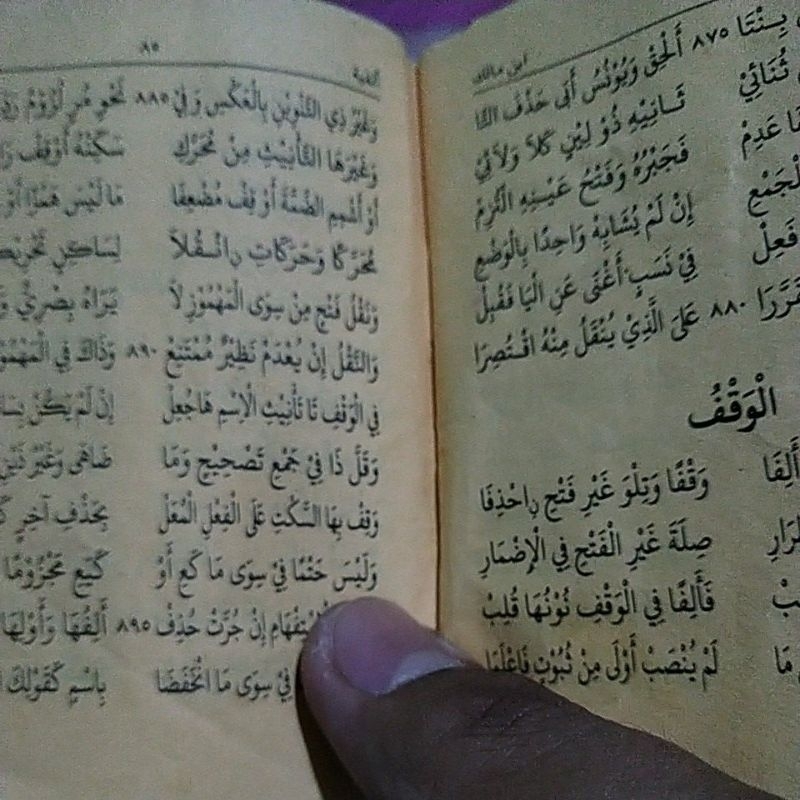 ابن مالك
بِنْتَا ٨٧٥ أَلْحِقْ وَيُوْنُسُ أَبَى حَذْفَ التَّا
ثُنَائِيْ ثَانِيْهِ ذُوْ لِيْنٍ كَلاَ وَلاَئِيْ
عَدِمْ فَجَبْرُهُ وَفَتْحُ عَيْنِهِ الْتُزِمْ
لْجَمْعِ إِنْ لَمْ يُشَابِهْ وَاحِدًا بِالْوَضْعِ
فَعِلْ فِيْ نَسَبٍ أَغْنَى عَنِ الْيَا فَقُبِلْ
قَرَّرَا ٨٨٠ عَلَى الَّذِيْ يُنْقَلُ مِنْهُ اقْتُصِرَا
الْوَقْفُ
أَلِفَا وَقْفًا وَتِلْوَ غَيْرِ فَتْحٍ نِ احْذِفَا
صِلَةَ غَيْرِ الْفَتْحِ فِي الْإِضْمَارِ
فَأَلِفًا فِي الْوَقْفِ نُوْنُهَا قُلِبْ
مَا لَمْ يُنْصَبْ أَوْلَى مِنْ ثُبُوْتٍ فَاعْلَمَا
ألفية ٨٥
وَغَيْرُ ذِي التَّنْوِيْنِ بِالْعَكْسِ وَفِيْ ٨٨٥ نَحْوِ مُرٍ لُزُوْمُ
وَغَيْرَهَا التَّأْنِيْثِ مِنْ مُحَرَّكِ سَكِّنْهُ أَوْ قِفْ
أَوْ أَشْمِمِ الضَّمَّةَ أَوْ قِفْ مُضْعِفَا مَا لَيْسَ هَمْزًا أَوْ
مُحَرَّكًا وَحَرَكَاتٍ نِ انْقُلاَ لِسَاكِنٍ
وَنَقْلُ فَتْحٍ مِنْ سِوَى الْمَهْمُوْزِ لاَ يَرَاهُ بِصْرِيٌّ
وَالنَّقْلُ إِنْ يُعْدَمْ نَظِيْرٌ مُمْتَنِعْ ٨٩٠ وَذَاكَ فِي الْمَهْمُوْ
فِي الْوَقْفِ تَا تَأْنِيْثِ الْاِسْمِ هَا جُعِلْ إِنْ لَمْ يَكُنْ
وَقَلَّ ذَا فِيْ جَمْعِ تَصْحِيْحٍ وَمَا ضَاهَى وَغَيْرُ ذَيْنِ
وَقِفْ بِهَا السَّكْتِ عَلَى الْفِعْلِ الْمُعَلْ بِحَذْفِ آخِرٍ
وَلَيْسَ حَتْمًا فِيْ سِوَى مَا كَعِ أَوْ كَيَعِ مَجْزُوْمًا
إِنْ جُرَّتْ حُذِفْ ٨٩٥ أَلِفُهَا وَأَوْلِهَا
فِيْ سِوَى مَا انْخَفَضَا بِاسْمٍ كَقَوْلِكَ